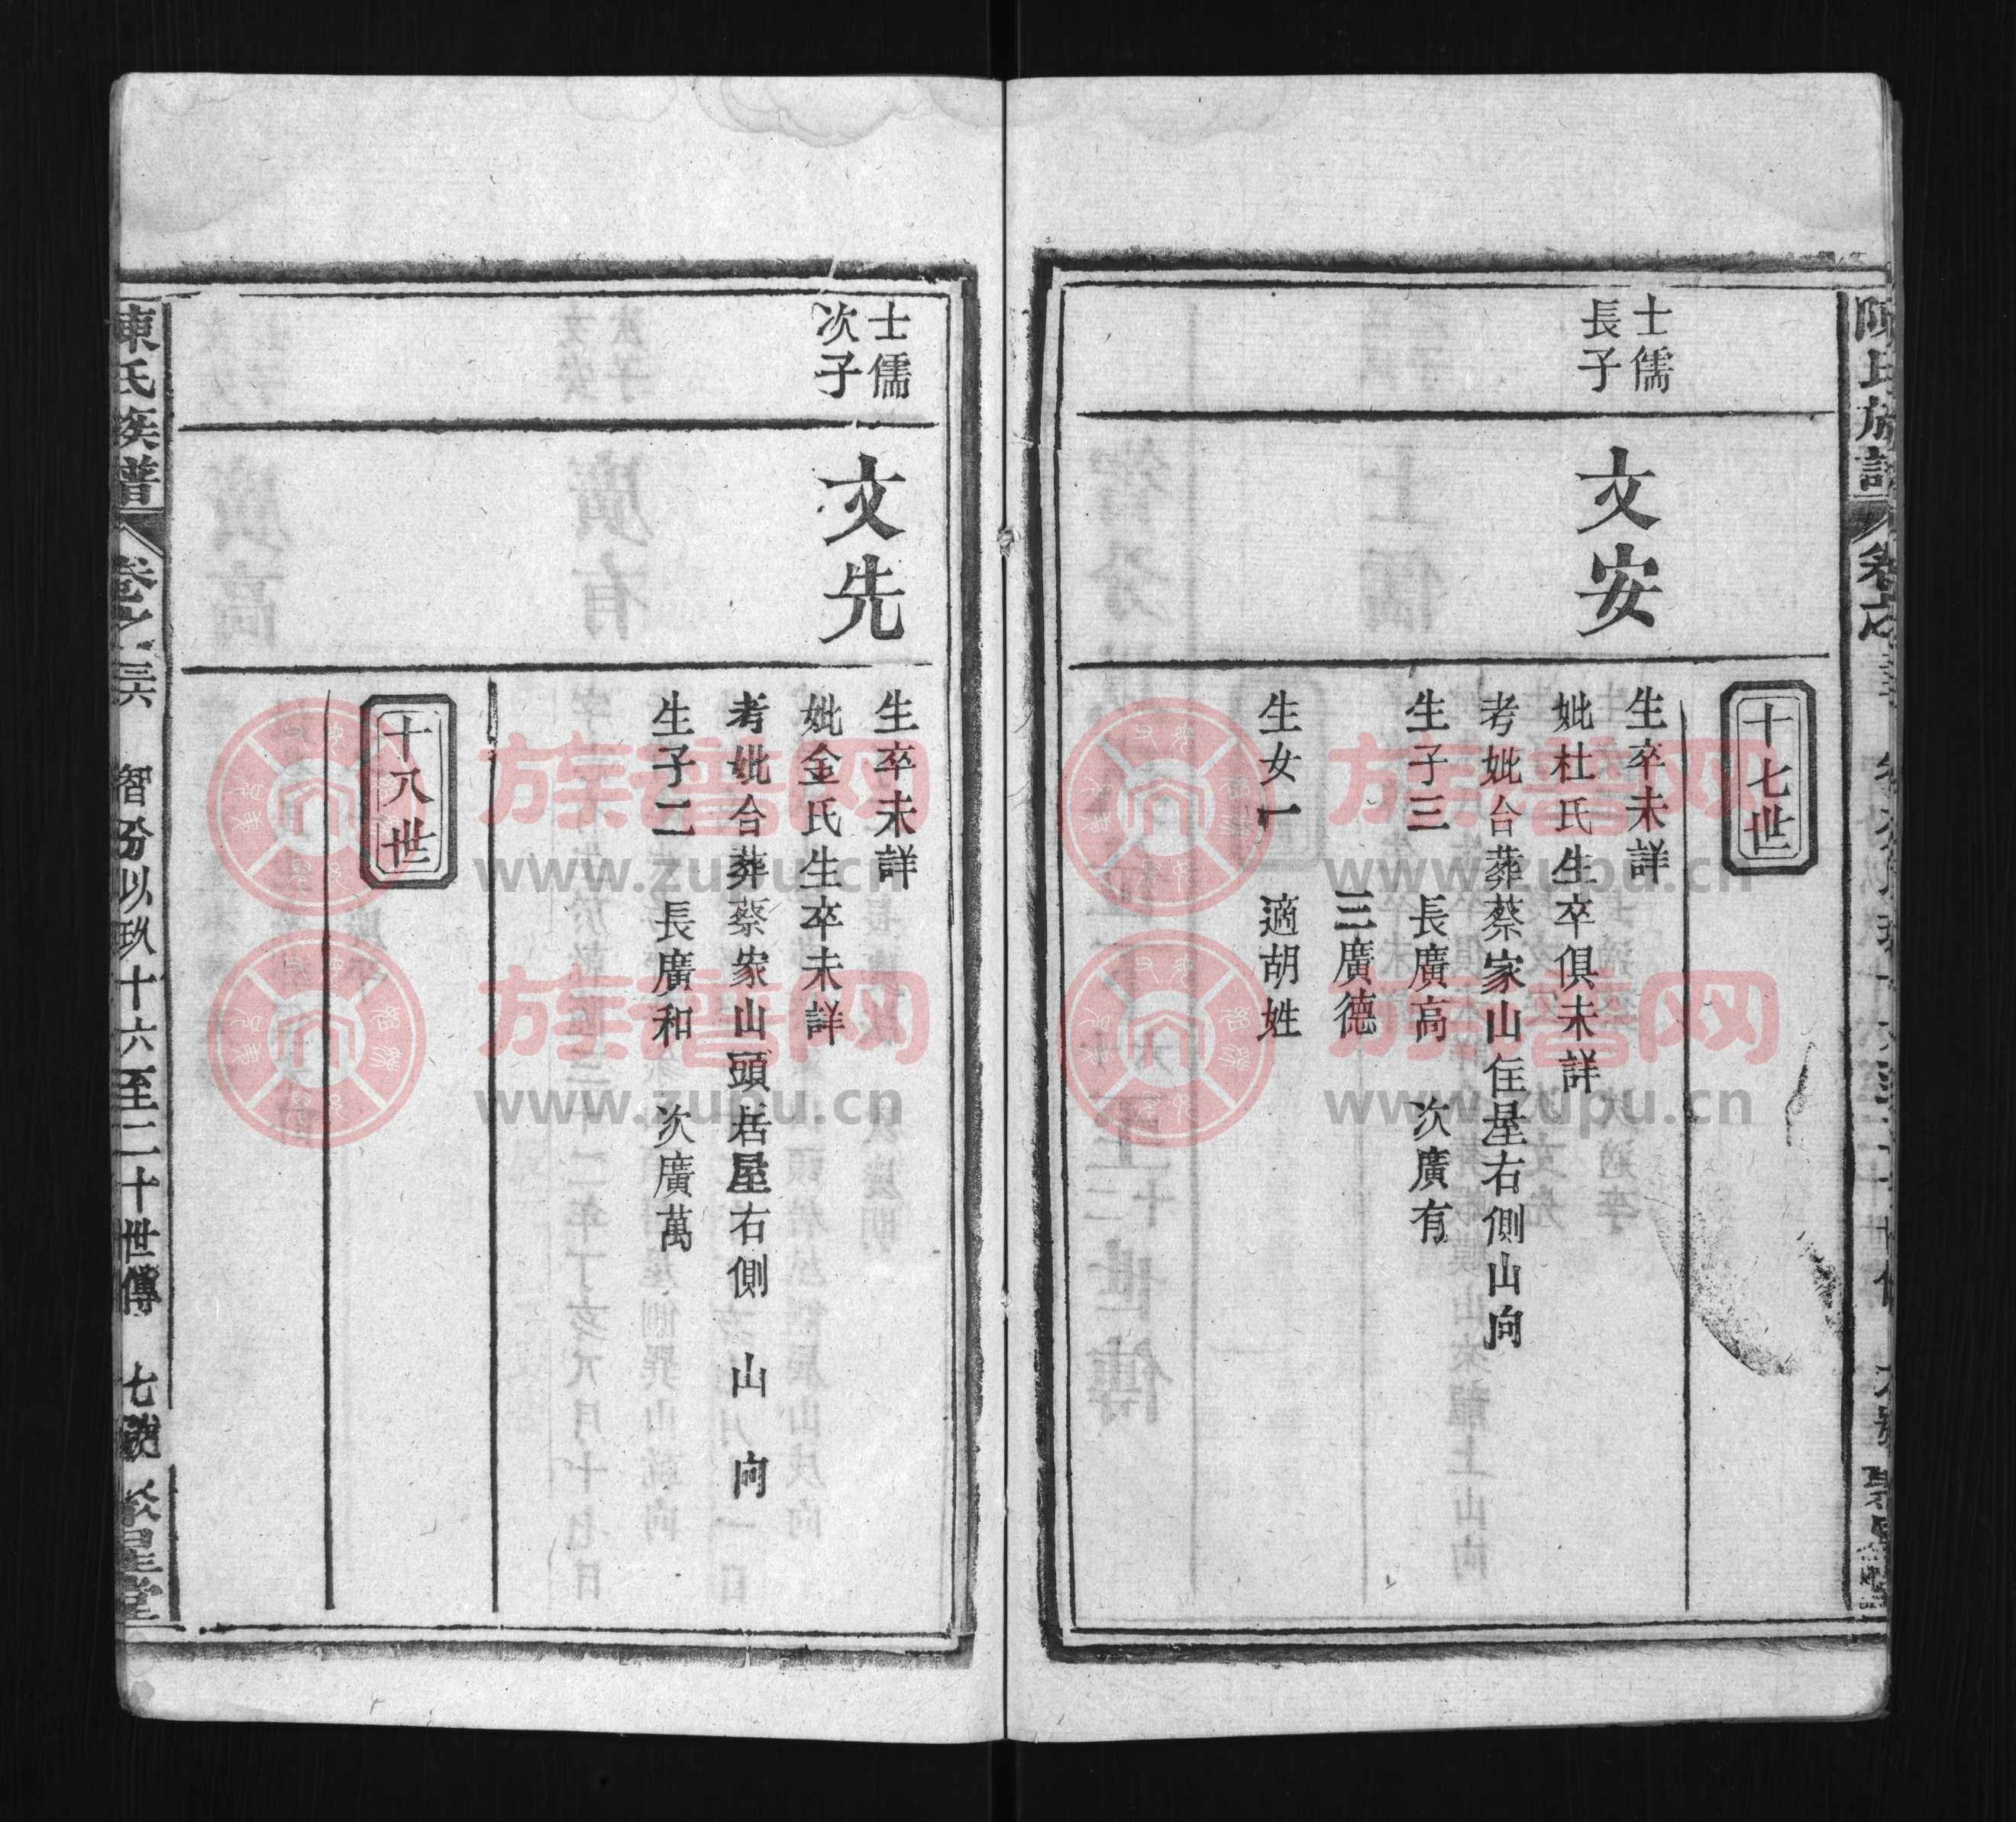 陳氏族譜
十七世
士儒
長子
文安
生卒未詳
妣杜氏生卒俱未詳
考妣合葬蔡家山住屋右側山向
生子三 長廣高 次廣有
三廣德
生女一 適胡姓
士儒
次子
文先
生卒未詳
妣金氏生卒未詳
考妣合葬蔡家山頭居屋右側 山 向
生子二 長廣和 次廣萬
十八世
陳氏族譜
智分以玖十六至二十世傳
七號
聚星堂
族譜网
www.zupu.cn
族譜网
www.zupu.cn
族譜网
www.zupu.cn
族譜网
www.zupu.cn